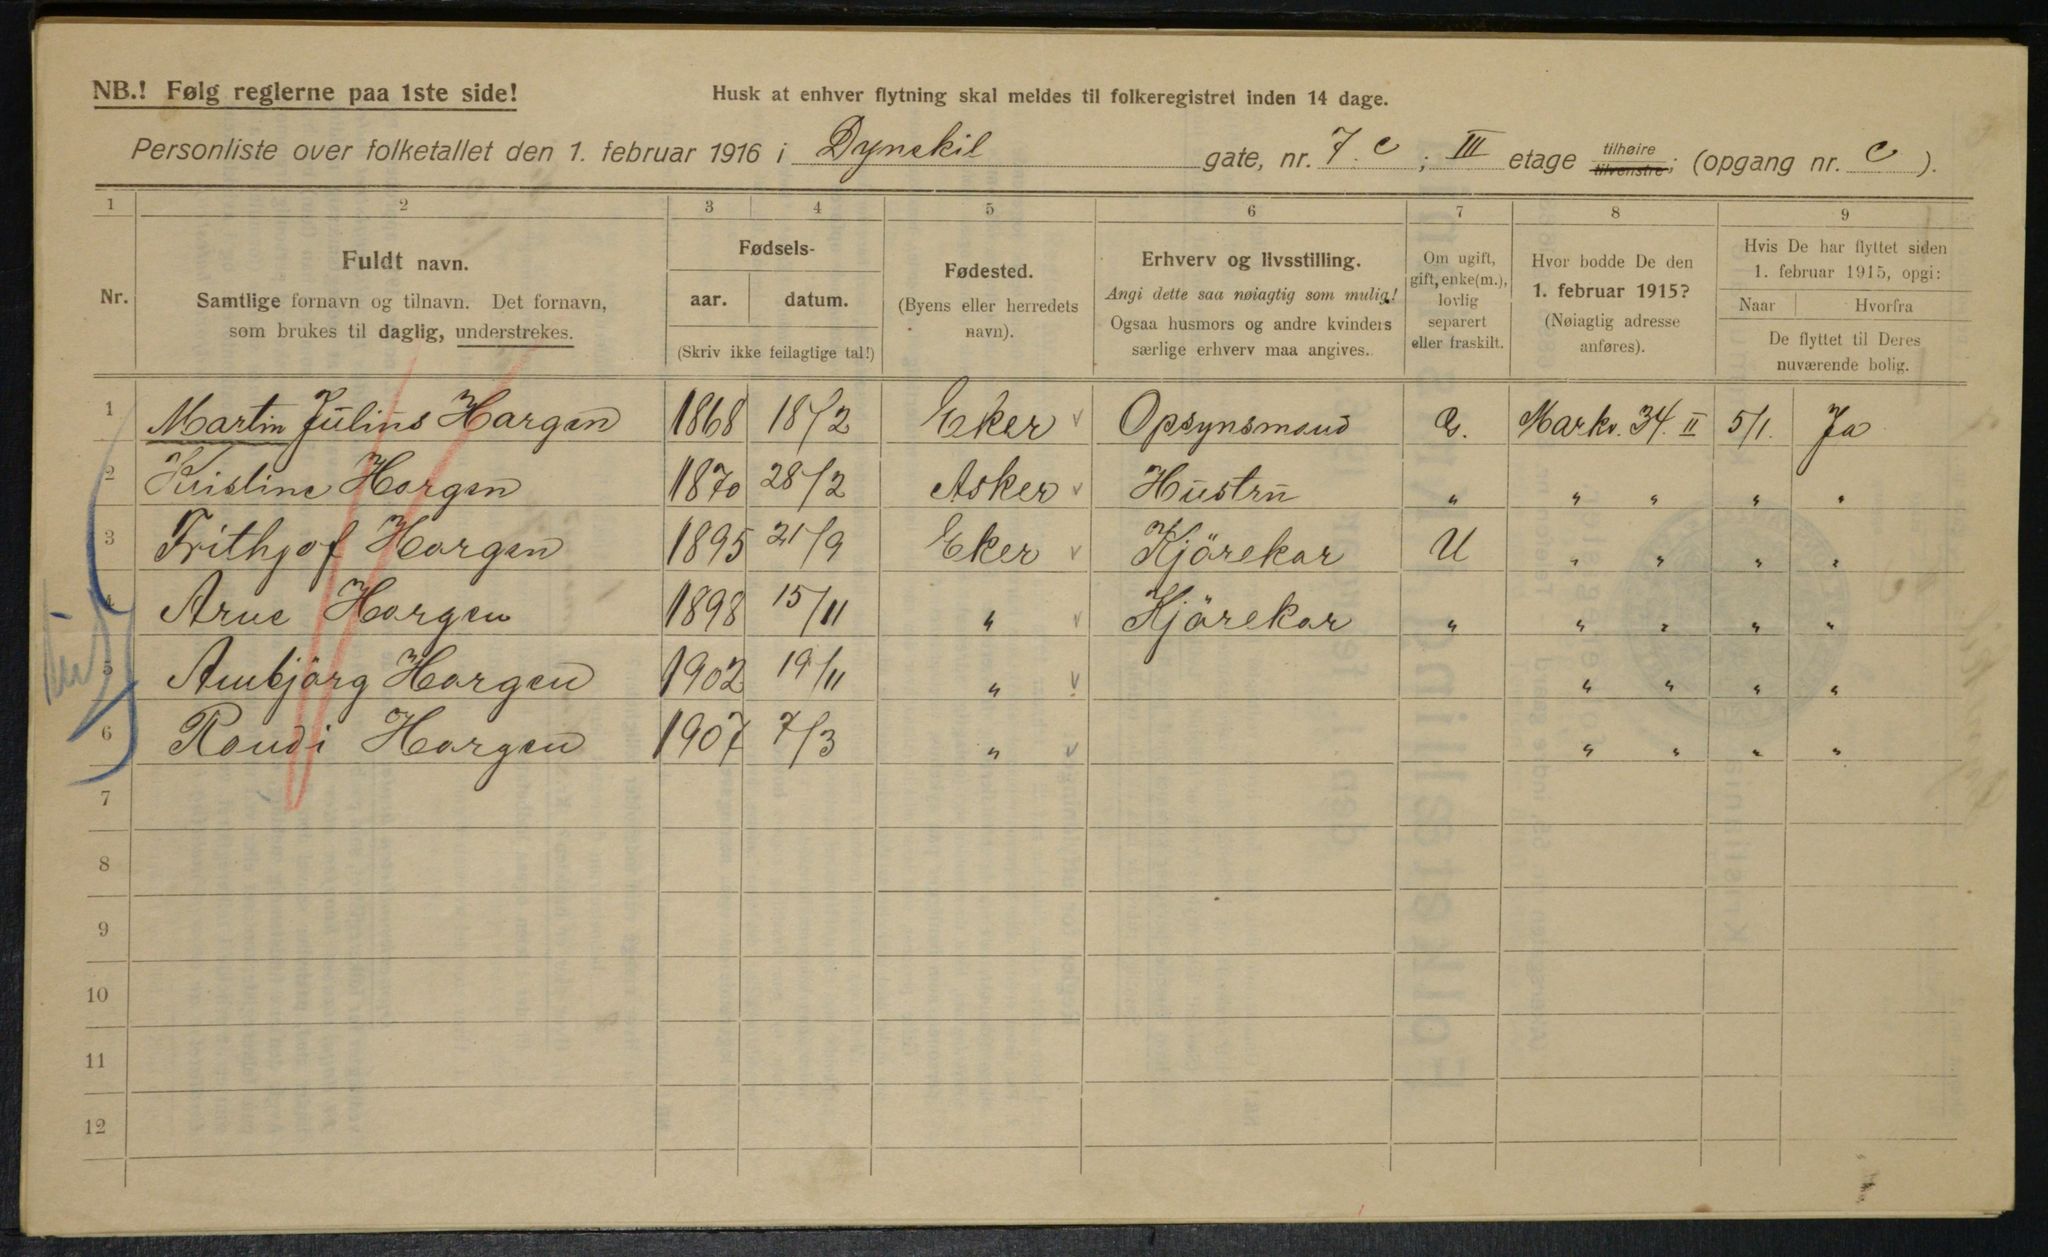 NB.! Følg reglerne paa 1ste side!
Husk at enhver flytning skal meldes til folkeregistret inden 14 dage.
Personliste over folketallet den 1. februar 1916 i Dynekil gate, nr. 7. c ; III etage tilhøire tilvenstre; (opgang nr. C ).
1 2 3 4 5 6 7 8 9
Nr.
Fuldt navn.
Samtlige fornavn og tilnavn. Det fornavn,
som brukes til daglig, understrekes.
Fødsels-
aar. datum.
(Skriv ikke feilagtige tal!)
Fødested.
(Byens eller herredets
navn).
Erhverv og livsstilling.
Angi dette saa nøiagtig som mulig!
Ogsaa husmors og andre kvinders
særlige erhverv maa angives.
Om ugift,
gift, enke(m.),
lovlig
separert
eller fraskilt.
Hvor bodde De den
1. februar 1915?
(Nøiagtig adresse
anføres).
Hvis De har flyttet siden
1. februar 1915, opgi:
Naar Hvorfra
De flyttet til Deres
nuværende bolig.
1 Martin Julius Horgen 1868 18/2 Eker Opsynsmand G. Markv. 34. II 5/1. Ja
2 Kristine Horgen 1870 28/2 Asker Hustru " " " " "
3 Frithjof Horgen 1895 21/9 Eker Kjörekar U " " " "
4 Arne Horgen 1898 15/11 " Kjörekar " " " " "
5 Ambjörg Horgen 1902 19/11 " " " " "
6 Randi Horgen 1907 7/3 " " " " "
7
8
9
10
11
12